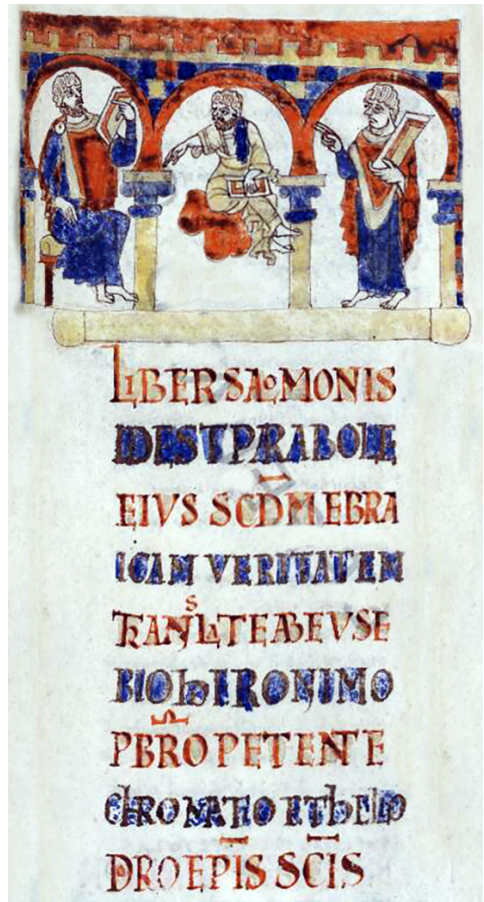 LIBER SALOMONIS
IDEST PARABOLE
EIVS SCD̄M EBRA
ICAM VERITATEM
TRANSLATE AB EVSE
BIO hIRONIMO
PB̄RO PETENTE
ChROMATIO ET hELIO
DRO EP̄IS SC̄IS